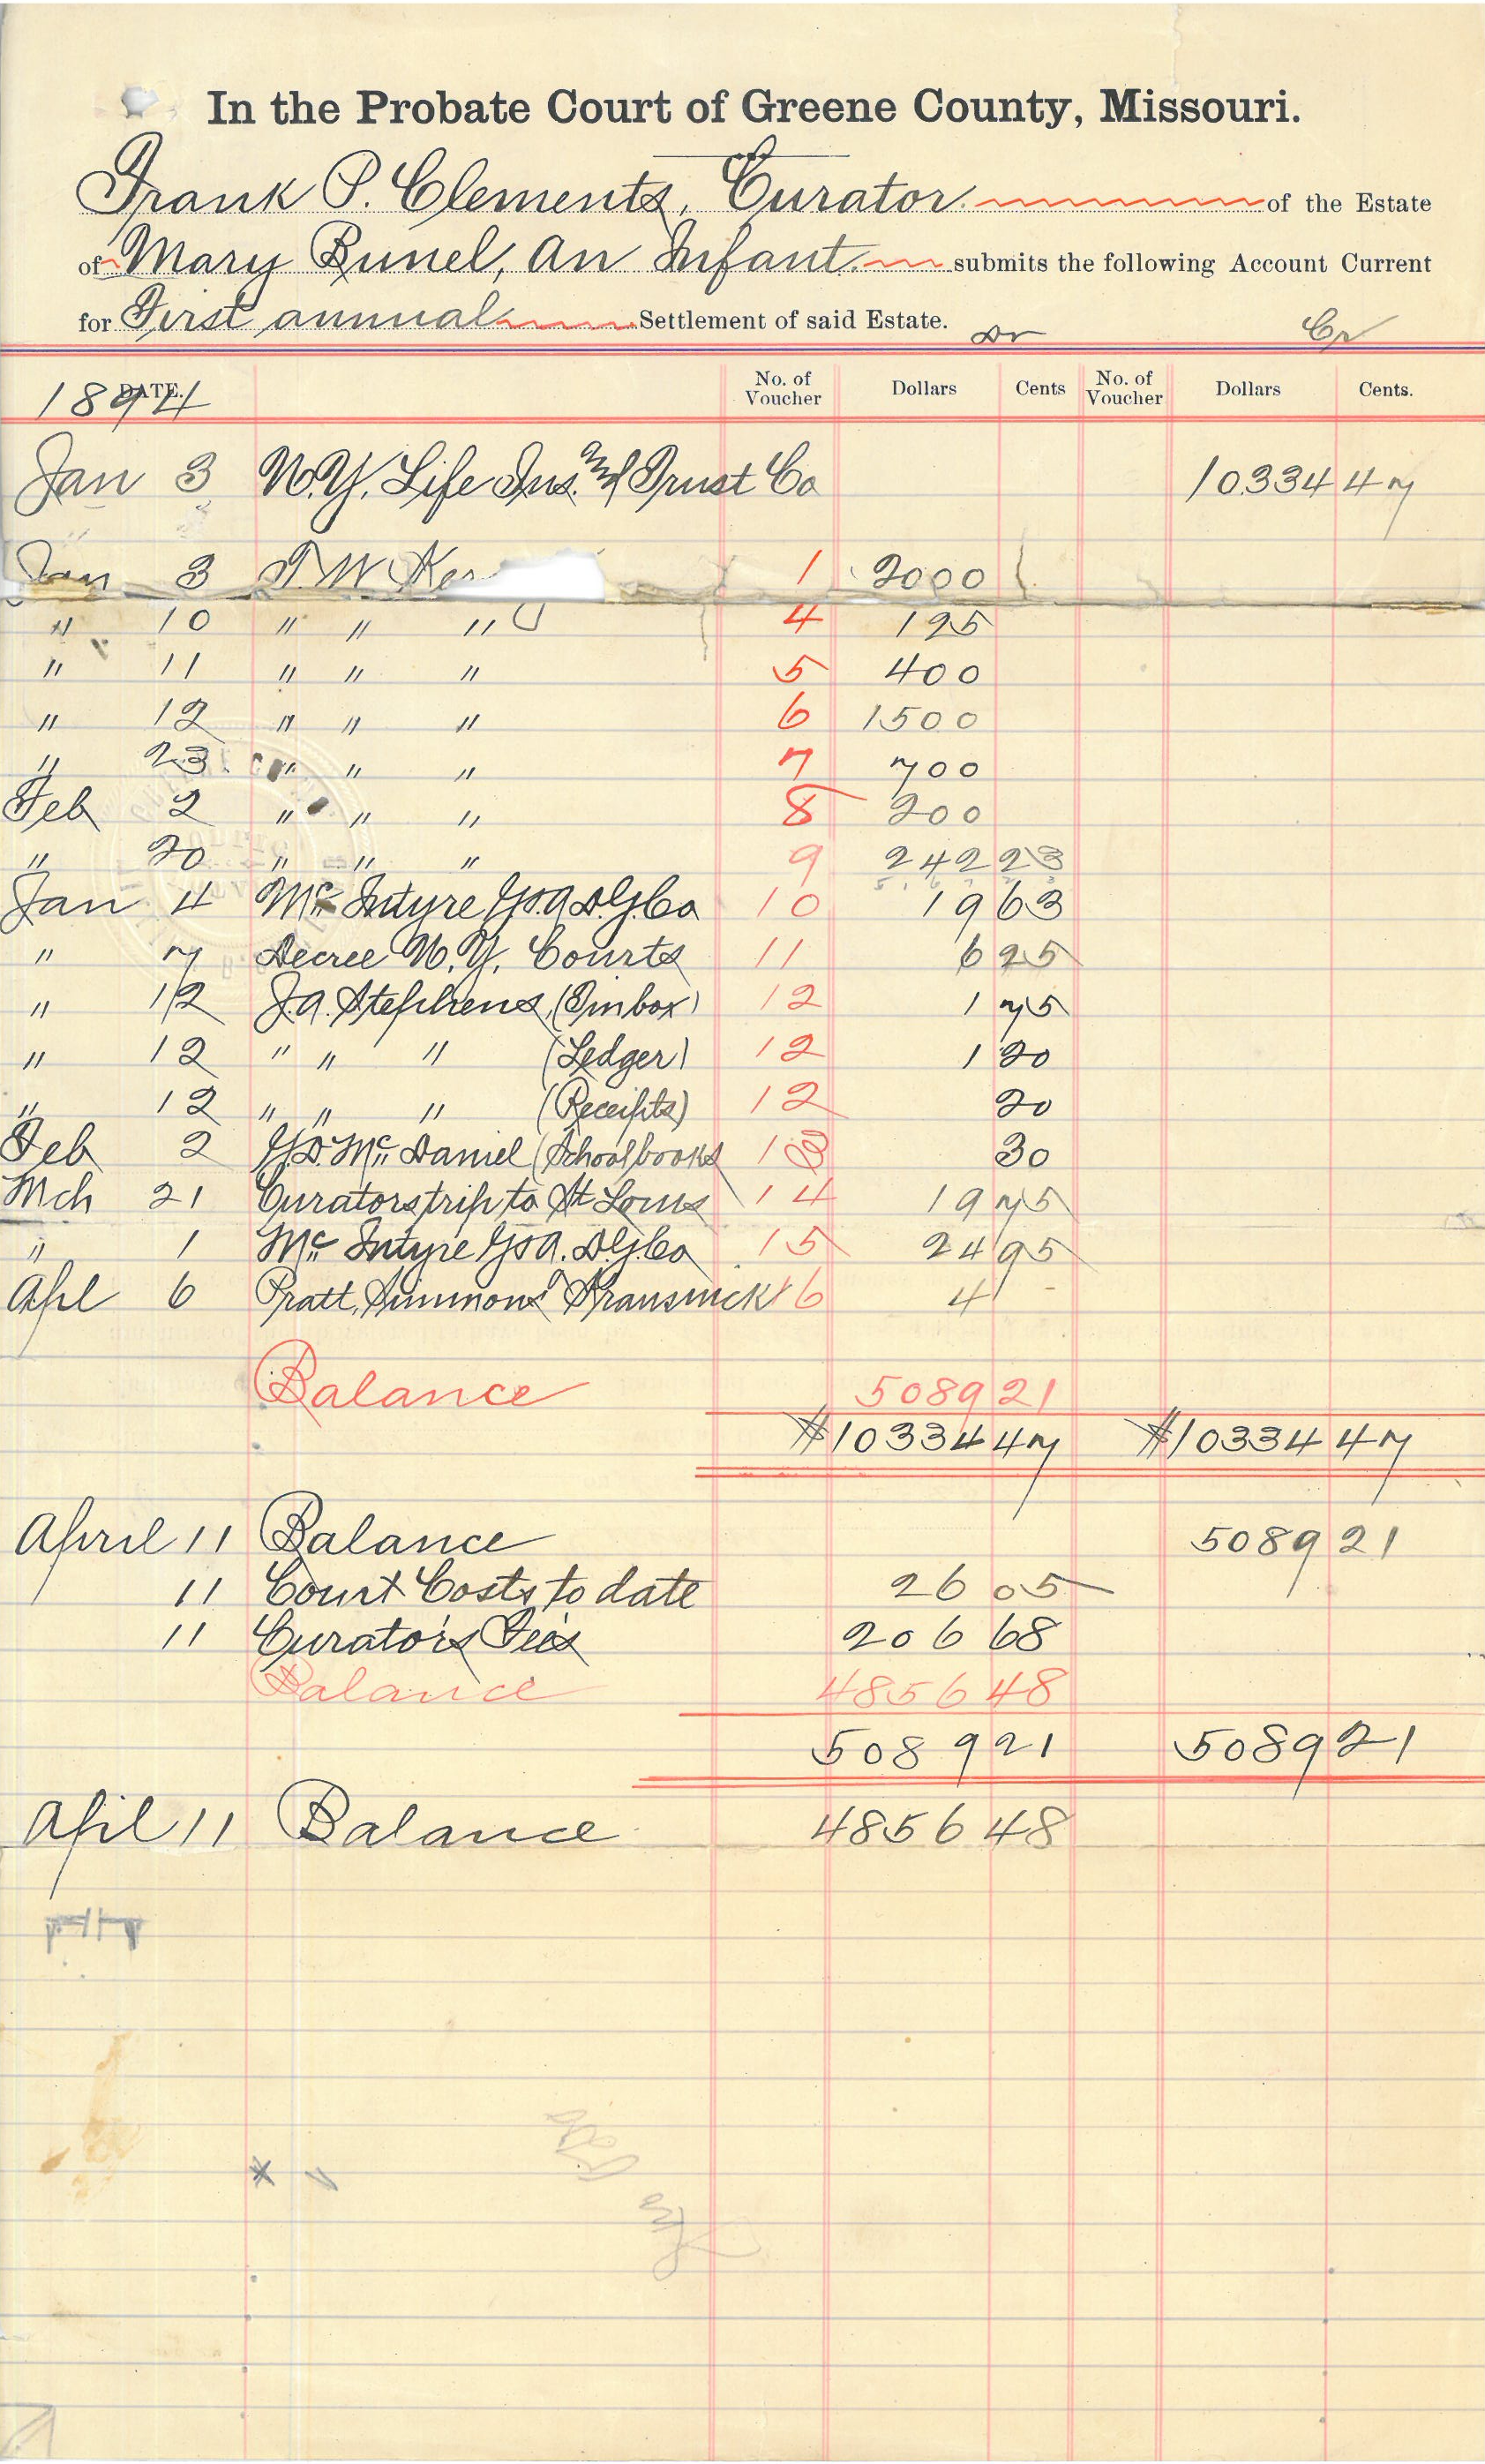 In the Probate Court of Greene County, Missouri.
Frank P. Clements, Curator of the Estate
of Mary Bunel, An Infant. submits the following Account Current
for First annual Settlement of said Estate. Dr Cr
DATE. 1894 No. of Voucher Dollars Cents No. of Voucher Dollars Cents.
Jan 3 N.Y. Life Ins. and Trust Co 10334 47
Jan 3 T W 1 2000
" 10 " " " 4 125
" 11 " " " 5 400
" 12 " " " 6 1500
" 23 " " " 7 700
Feb 2 " " " 8 200
" 20 " " " 9 242 23
Jan 4 Mc Intyre D.G. Co 10 19 63
" 7 Decree N.Y. Courts 11 6 25
" 12 J.A. Stephens, (Tinbox) 12 1 75
" 12 " " " (Ledger) 12 1 20
" 12 " " " (Receipts) 12 20
Feb 2 Mc Daniel (Schoolbooks 13 30
Mch 21 Curators trip to St Louis 14 19 75
" 1 Mc Intyre D.G. Co 15 24 95
Apl 6 Pratt, Simmons 16 4 -
Balance 5089 21
$10334 47 $10334 47
April 11 Balance 5089 21
11 Court Costs to date 26 05
11 Curator's Fees 206 68
Balance 4856 48
5089 21 5089 21
Apil 11 Balance 4856 48